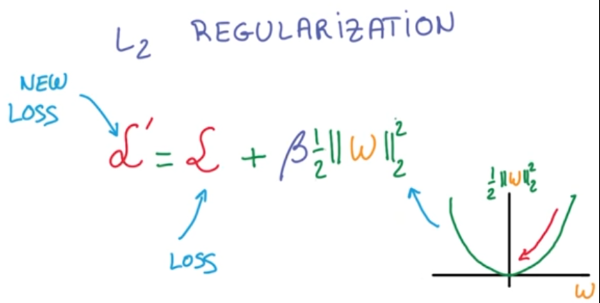 L₂ REGULARIZATION
NEW
LOSS
ℒ′ = ℒ + β ½ ||W||₂²
LOSS
½ ||W||₂²
W